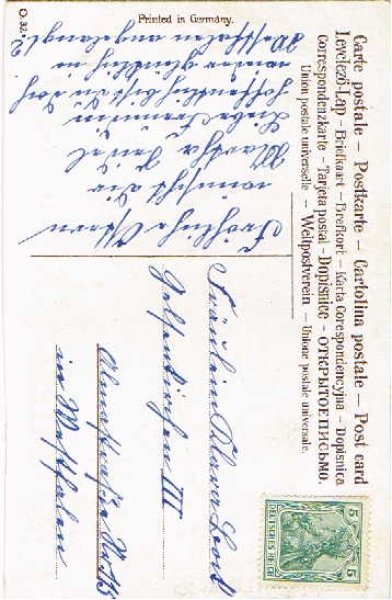 Carte postale — Postkarte — Cartolina postale — Post card
Levelező-Lap — Briefkaart — Brefkort — Karta Corespondencyjna — Dopisnica
Correspondenzkarte — Tarjeta postal — Dopisnice — ОТКРЫТОЕ ПИСЬМО.
Union postale universelle — Weltpostverein — Unione postale universale.
Fröhliche Ostern
wünscht Dir
Martha
Liebe Freundin
hoffentlich bist Du doch
wieder glücklich in
Westfalen angelangt?
Fräulein Clara
Gelsenkirchen III
Nr. 15
in Westfalen
5 5
DEUTSCHES REICH
O. 32.
Printed in Germany.